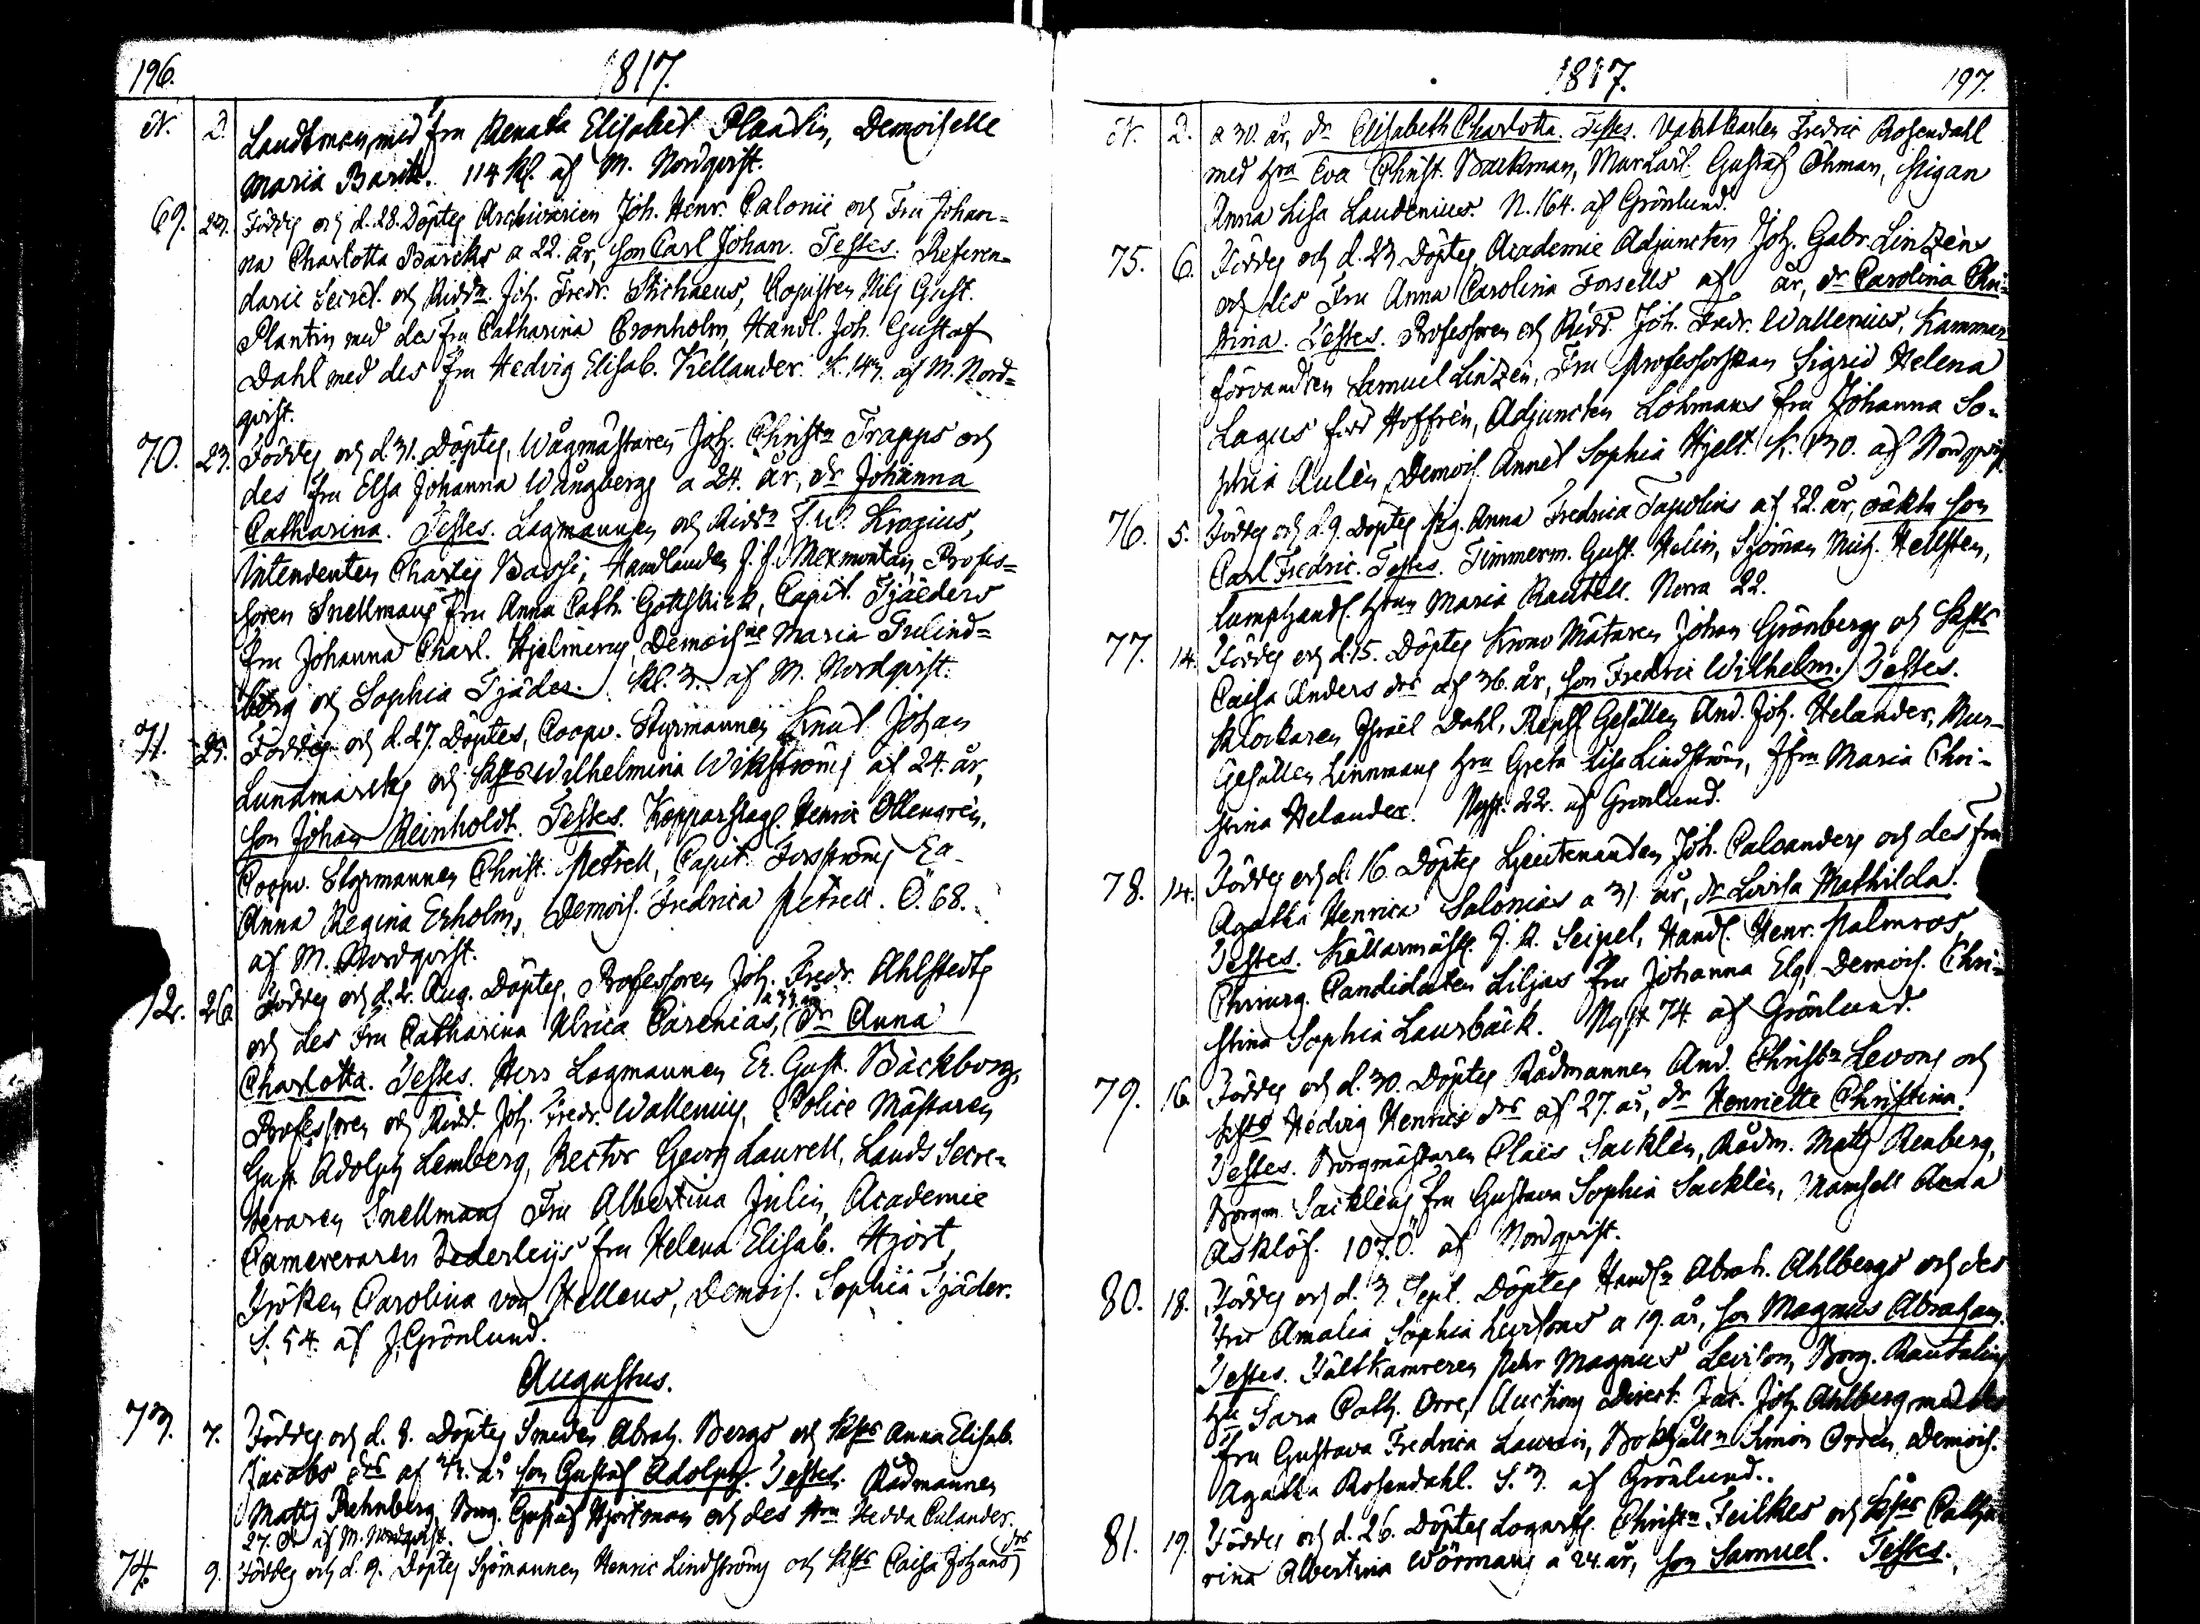 196. 1817.
N. D. Landtman, med fru Renata Elisabet Plantin, Demoiselle
Maria Barck. 114 Kl. af M. Nordqvist.
69. 23. Föddes och d. 28. Döptes Archivarien Joh. Henr. Calonii och Fru Johan-
na Charlotta Barcks a 22. år, Son Carl Johan. Testes. Referen-
darie Secret. och Ridd. Joh. Fredr. Stichaeus, Copisten Nils Gust.
Plantin med des Fru Catharina Cronholm, Handl. Joh. Gustaf
Dahl med des Fru Hedvig Elisab. Kellander. K. 147. af M. Nord-
qvist.
70. 23. Föddes och d. 31. Döptes, Wågmästaren Joh. Christn Trapps och
des fru Elsa Johanna Wångbergs a 24. år, dr Johanna
Catharina. Testes. Lagmannen och Riddn F. W. Krogius,
Intendenten Charles Bassi, Handlanden J. J. Mexmontan, Profes-
soren Snellmans Fru Anna Cath. Gottskick, Capit. Tjäeders
fru Johanna Charl. Hjelmerus, Demoislle Maria Tulind-
berg och Sophia Tjäder. Kl. 3. af M. Nordqvist.
71. 25. Föddes och d. 27. Döptes, Coopv. Styrmannen Knut Johan
Lundmarcks och hstro Wilhelmina Wikströms af 24. år,
Son Johan Reinholdt. Testes. Kopparslag. Henric Ollengren,
Coopv. Styrmannen Christ. Petrell, Capit. Forsströms Ea
Anna Regina Erholm, Demois. Fredrica Petrell. Ö. 68.
af M. Nordqvist.
72. 26. Föddes och d. 2. Aug. Döptes, Professoren Joh. Fredr. Ahlstedts
a 33 år
och des Fru Catharina Ulrica Carenias, dr Anna
Charlotta. Testes. Herr Lagmannen Er. Gust. Bäckborg,
Professoren och Ridd. Joh. Fredr. Wallenius, Police Mästaren
Gust. Adolph Lemberg, Rector Georg Laurell, Lands Secre-
teraren Snellmans Fru Albertina Julin, Academie
Camereraren Zederleijs fru Helena Elisab. Hjort,
Fröken Carolina von Hellens, Demois. Sophia Tjäder.
S. 54. af J. Grönlund.
Augustus.
73. 7. Föddes och d. 8. Döptes Smeden Abrah. Bergs och hstro Anna Elisab.
Jacobs drs af 42. år Son Gustaf Adolph. Testes. Rådmannen
Matts Rehnberg, Borg. Gustaf Hjortman och des Hru Hedda Culander.
27. Ö. af M. Nordqvist.
74. 9. Föddes och d. 9. Döptes Sjömannen Henric Lindströms och hstro Caisa Johans drs
1817. 197.
N. D. a 30. år, dr Elisabeth Charlotta. Testes. Vaktkarlen Fredric Rosendahl
med hru Eva Christ. Backman, Murkarl. Gustaf Öhman, Pigan
Anna Lisa Laudenius. N. 164. af Grönlund.
75. 6. Föddes och d. 23 Döptes, Academie Adjuncten Joh. Gabr. Linzéns
och des Fru Anna Carolina Forsells af år, dr Carolina Chri-
stina. Testes. Professoren och Ridd. Joh. Fredr. Wallenius, Kammar
förvandten Samuel Linzén, Fru Professorskan Sigrid Helena
Lagus född Hoffrén, Adjuncten Lohmans fru Johanna So-
phia Aulén, Demois. Annet Sophia Hjelt. K. 130. af Nordqvist
76. 5. Föddes och d. 9. Döptes Pig. Anna Fredrica Tapolins af 22. år, oäkta son
Carl Fredric. Testes. Timmerm. Gust. Helin, Sjöman Mich. Hellsten,
Lumphandl. Hrun Maria Rautell. Norra 22.
77. 14. Föddes och d. 15. Döptes Krono Mätaren Johan Grönbergs och hstro
Caisa Anders drs af 36. år, Son Fredric Wilhelm. Testes.
Klockaren Israel Dahl, Repsl. Gesällen And. Joh. Helander, Mur-
Gesällen Linnmans hru Greta Lisa Lindström, Jfru Maria Chri-
stina Helander. Nyst. 22. af Grönlund.
78. 14. Föddes och d. 16. Döptes Lieutenanten Joh. Calvanders och des fru
Agatha Henrica Salonias a 31. år, dr Lovisa Mathilda.
Testes. Källarmäst. J. A. Seipel, Handl. Henr. Palmros,
Chirurg. Candidaten Liljas fru Johanna Elg, Demois. Chri-
stina Sophia Laurbäck. Nyst. 74. af Grönlund.
79. 16. Föddes och d. 30. Döptes Rådmannen And. Christn Levons och
hstro Hedvig Henrics drs af 27. år, dr Henriette Christina.
Testes. Borgmästaren Claës Sacklén, Rådm. Matts Renberg,
Borgm. Sackléns fru Gustava Sophia Sacklén, Mamsell Anna
Asklöf. 107. Ö. af Nordqvist.
80. 18. Föddes och d. 3. Sept. Döptes Handln Abrah. Ahlbergs och des
fru Amalia Sophia Levisons a 19. år, Son Magnus Abraham.
Testes. Fältkamreren Pehr Magnus Levison, Borg. Rautelins
hu Sara Cath. Orre, Auctions Direct. Jac. Joh. Ahlberg med des
Fru Gustava Fredrica Laurin, Bokhålln Simon Ordén, Demois.
Agatha Rosendahl. S. 3. af Grönlund.
81. 19. Föddes och d. 26. Döptes Logarfs. Christn Feilkes och hstro Catha
rina Albertina Wörmans a 24. år, Son Samuel. Testes.